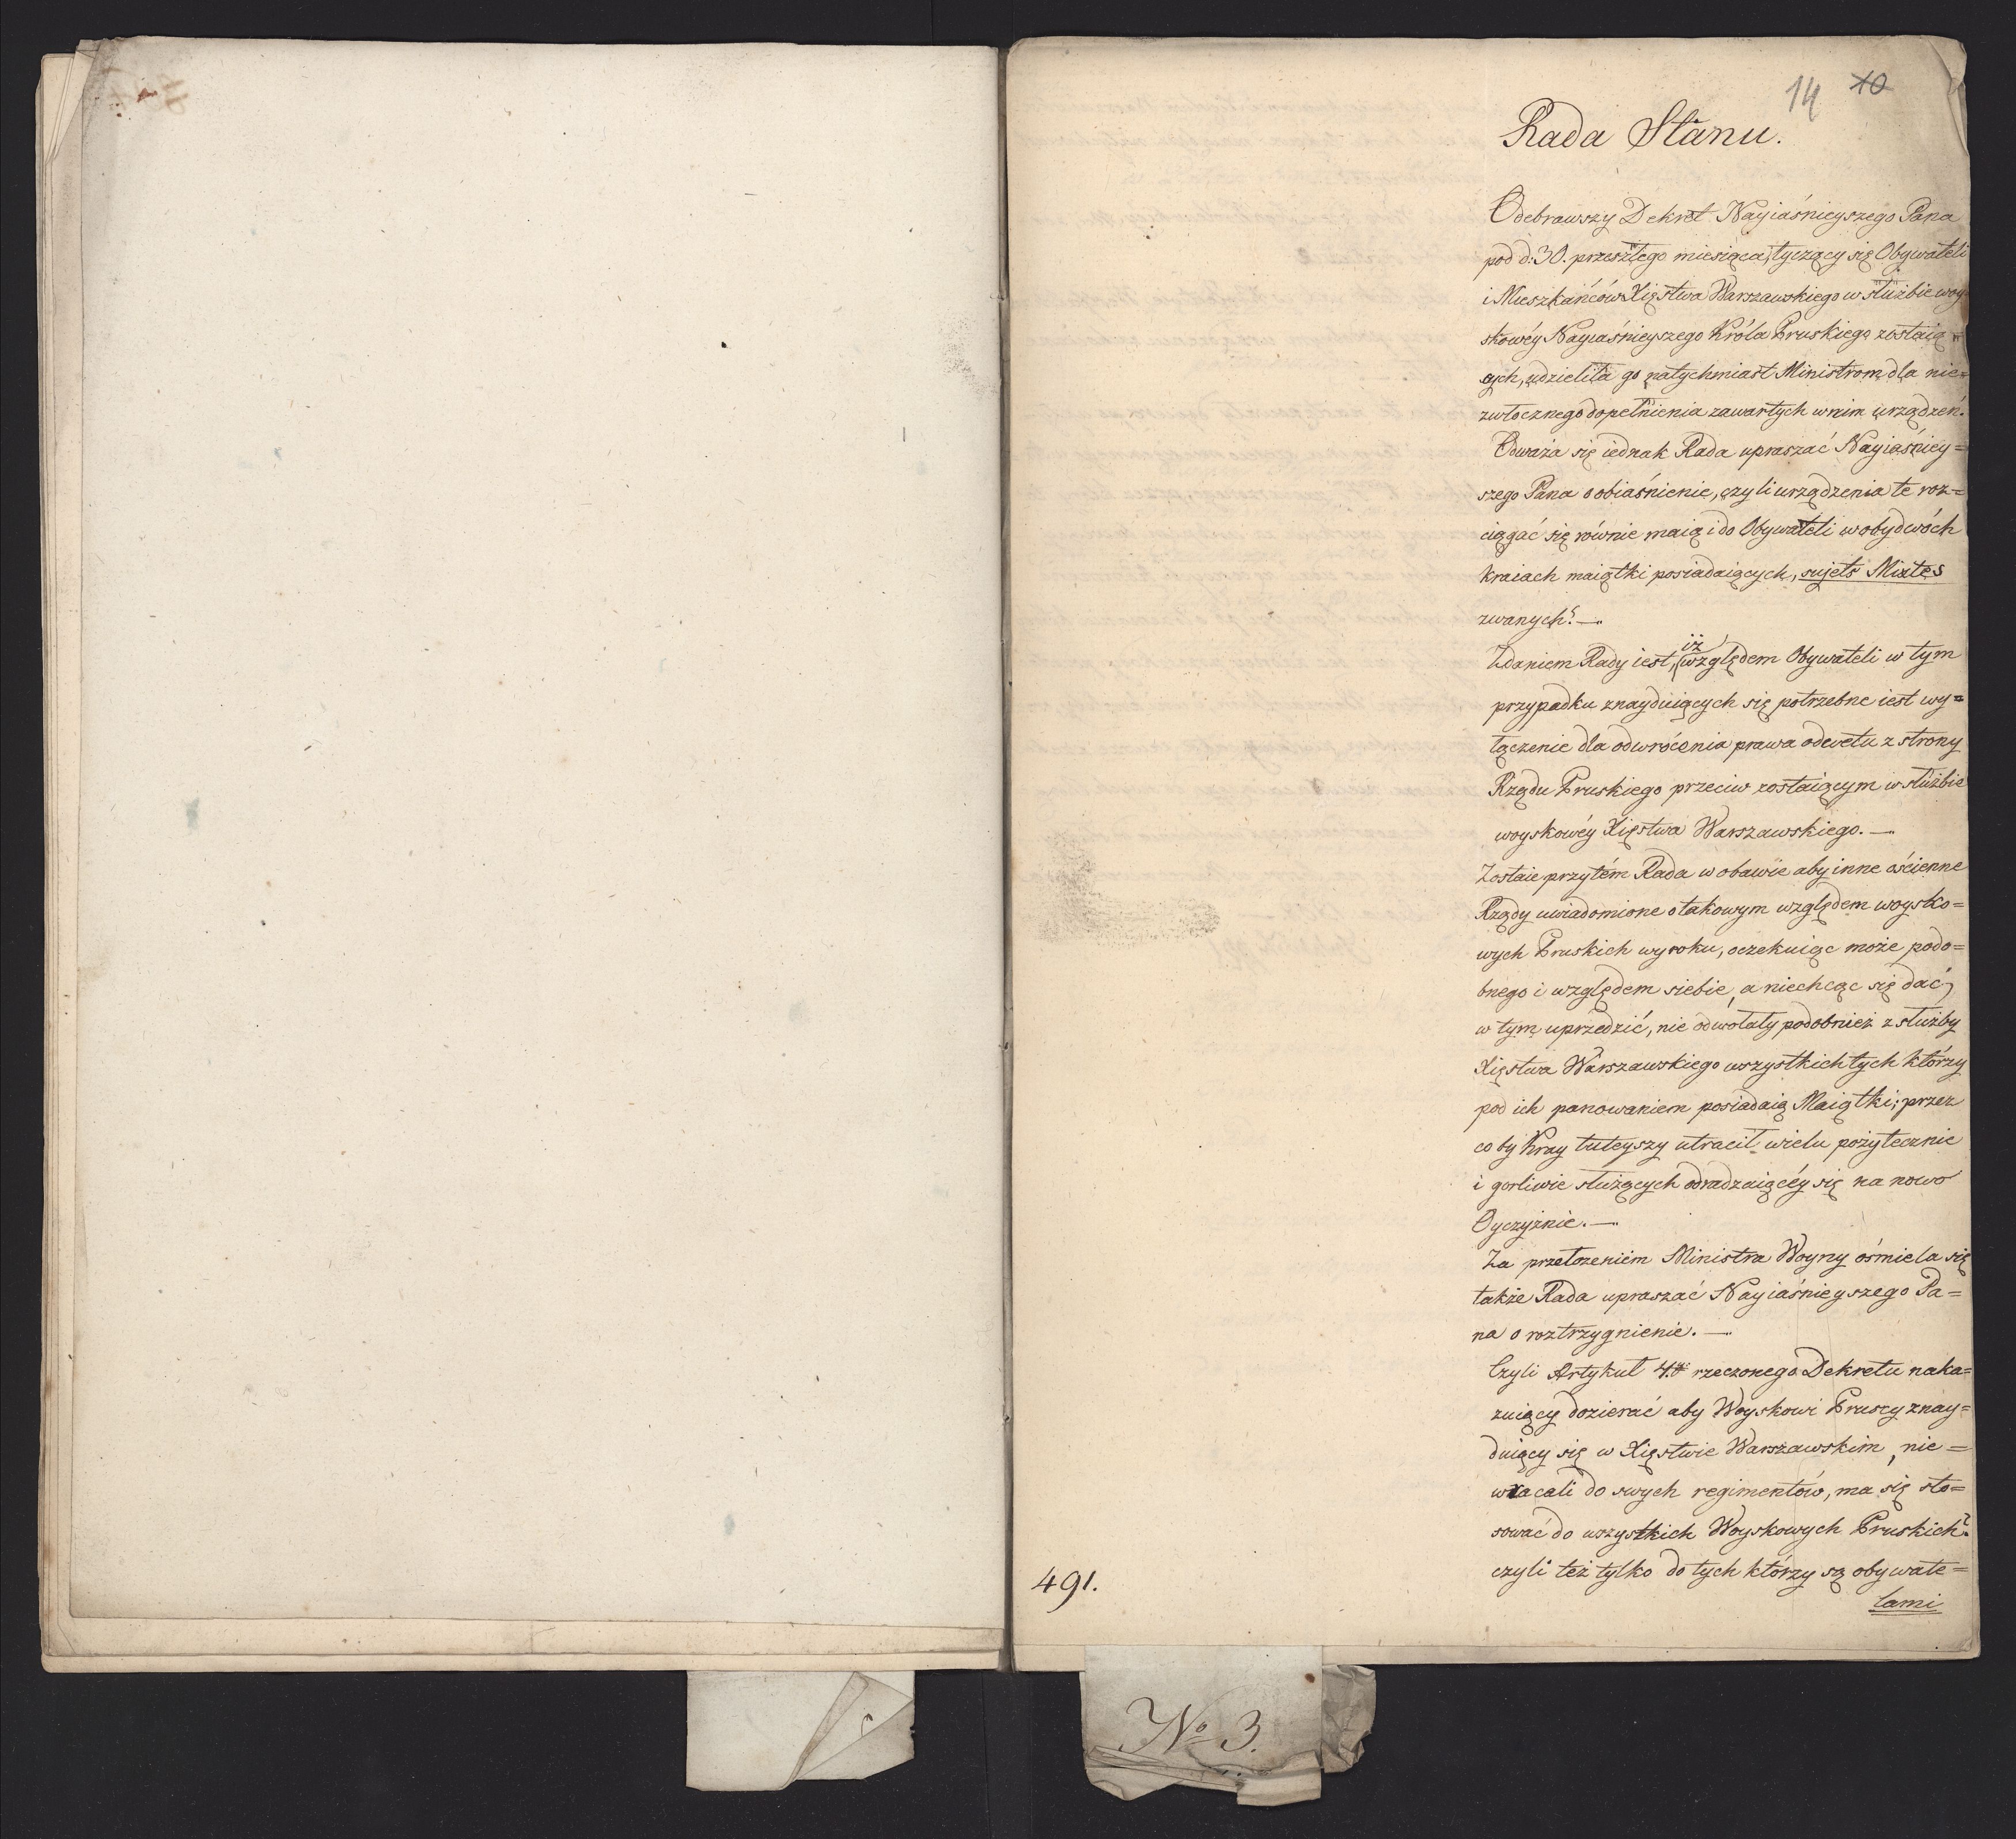 14 10
Rada Stanu.
Odebrawszy Dekret Nayiaśnieyszego Pana
pod d: 30. przeszłego miesiąca, tyczący się Obywateli
i Mieszkańców Xięstwa Warszawskiego w służbie woy-
skowéy Nayiaśnieyszego Króla Pruskiego zostaią=
cych, udzieliła go natychmiast Ministrom dla nie=
zwłocznego dopełnienia zawartych w nim urządzeń.
Odważa się iednak Rada upraszać Nayiaśniey=
szego Pana o obiaśnienie, czyli urządzenia te roz=
ciągać się równie maią i do Obywateli w obydwóch
kraiach maiątki posiadaiących, sujets Mixtes
zwanych? —
Zdaniem Rady iest, iż względem Obywateli w tym
przypadku znayduiących się potrzebne iest wy=
łączenie dla odwrócenia prawa odwetu z strony
Rządu Pruskiego przeciw zostaiącym w służbie
woyskowéy Xięstwa Warszawskiego. —
Zostaie przytém Rada w obawie aby inne ościenne
Rządy uwiadomione o takowym względem woysko=
wych Pruskich wyroku, oczekuiąc może podo=
bnego i względem siebie, a niechcąc się dać
w tym uprzedzić, nie odwołały podobnież z służby
Xięstwa Warszawskiego wszystkich tych którzy
pod ich panowaniem posiadaią Maiątki; przez
co by Kray tuteyszy utracił wielu pożytecznie
i gorliwie służących odradzaiącéy się na nowo
Oyczyźnie. —
Za przełożeniem Ministra Woyny ośmiela się
także Rada upraszać Nayiaśnieyszego Pa=
na o roztrzygnienie. —
Czyli Artykuł 4.ty rzeczonego Dekretu naka=
zuiący dozierać aby Woyskowi Pruscy znay=
duiący się w Xięstwie Warszawskim, nie=
wracali do swych regimentów, ma się sto=
sować do wszystkich Woyskowych Pruskich?
czyli też tylko do tych którzy są obywate=
lami
491.
No 3.